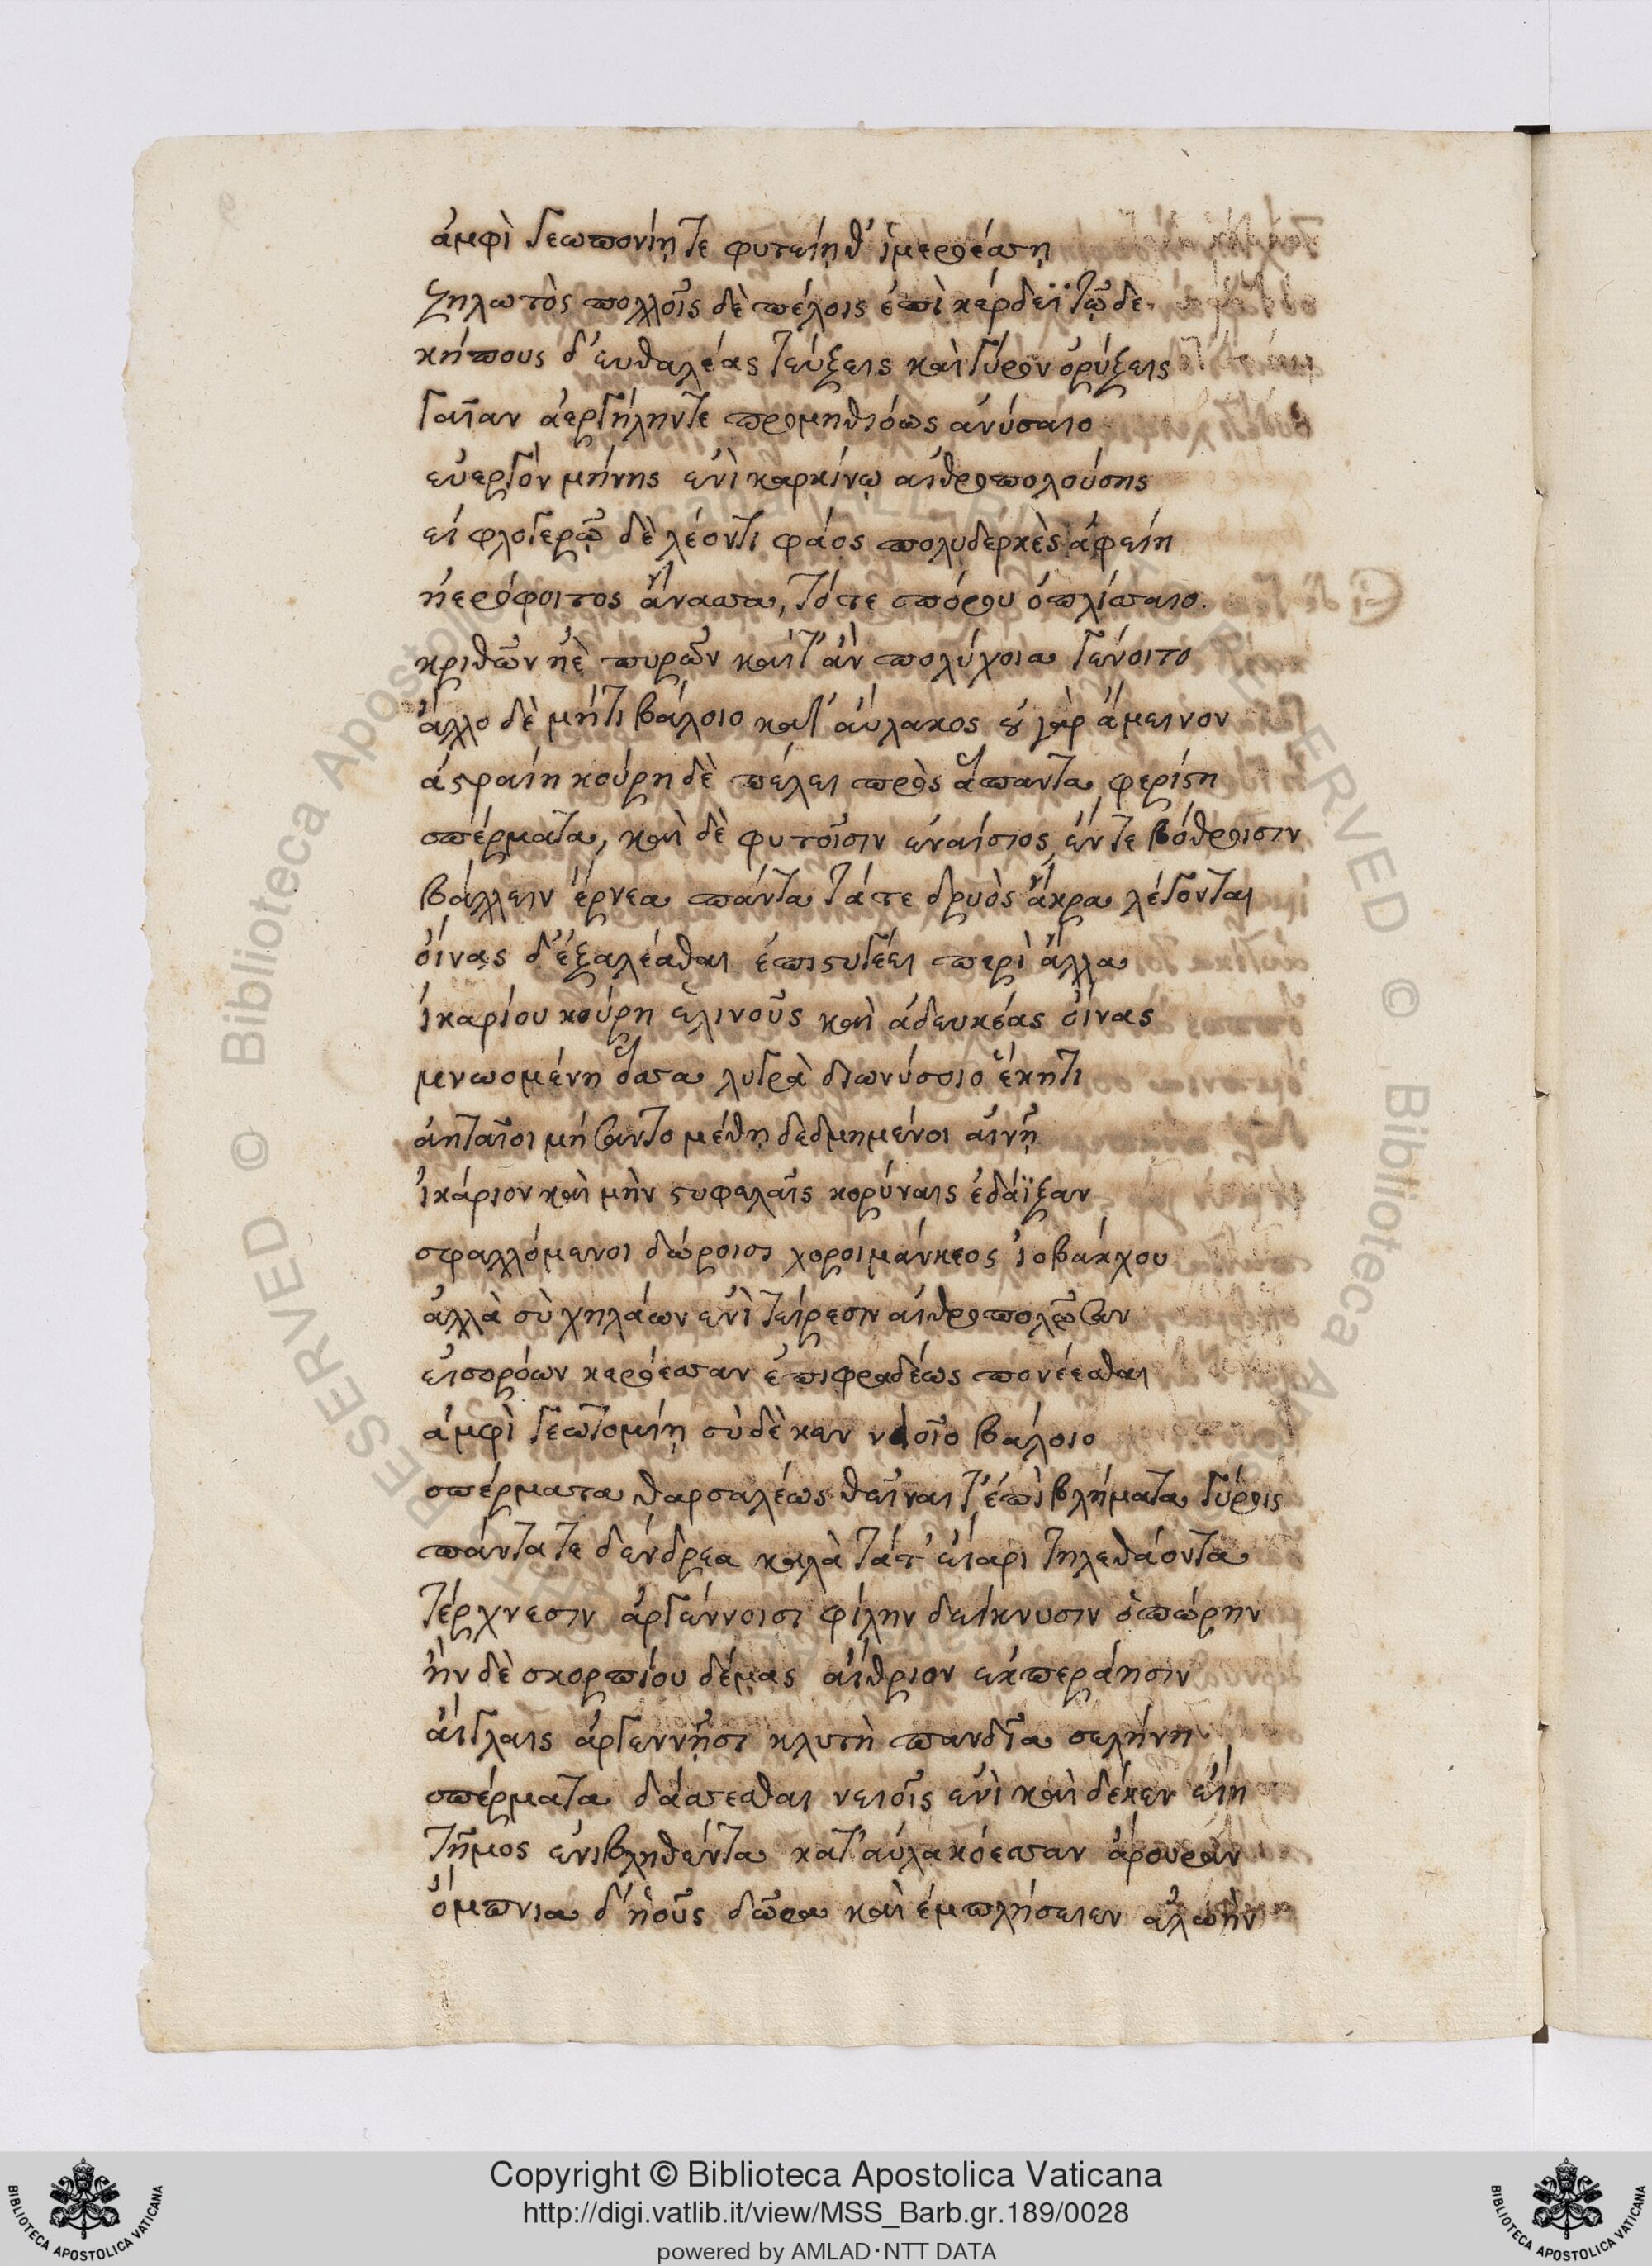 ἀμφὶ γεωπονίῃ τε φυτείῃ θ' ἱμεροέσσῃ
ζηλωτὸς πολλοῖς δὲ πέλοις ἐπὶ κέρδεϊ τῷδε
κήπους δ' ευθαλέας τεύξεις καὶ γύρον ὀρύξεις
γαῖαν ἀεργήλην τε προμηθιόως ἀνύσαιο
εὐεργὸν μήνης ἐνὶ καρκίνῳ αἰθροπολούσης
εἰ φλογερῷ δὲ λέοντι φάος πολυδερκὲς ἀφείη
ἠερόφοιτος ἄνασσα, τότε σπόρου ὁπλίσσαιο.
κριθῶν ἠὲ πυρῶν καὶ τ' ἂν πολύχοια γένοιτο
ἄλλο δὲ μήτι βάλοιο κατ' αὔλακος οὐ γὰρ ἄμεινον
ἀστραίη κούρη δὲ πέλει πρὸς ἅπαντα φερίστη
σπέρματα, καὶ δὲ φυτοῖσιν ἐναίσιος, ἔν τε βόθροισιν
βάλλειν ἔρνεα πάντα τά τε δρυὸς ἄκρα λέγονται
οἴνας δ' ἐξαλέασθαι ἐπιστυγέει περὶ ἄλλα
ἰκαρίου κούρη ἑλινοῦς καὶ ἀδευκέας οἴνας
μνωομένη ὅσσα λυγρὰ διωνύσοιο ἕκητι
ἀηταῖοι μήσαντο μέθῃ δεδμημένοι αἰνῇ
ἰκάριον καὶ μὴν στυφελαῖς κορύναις ἐδάϊξαν
σφαλλόμενοι δώροισι χοροιμάνκεος ἰοβάκχου
ἀλλὰ σὺ χηλάων ἐνὶ τείρεσιν αἰθροπολῶσαν
εἰσορόων κερόεσσαν ἐπιφραδέως πονέεσθαι
ἀμφὶ γεωτομίῃ σὺ δὲ κεν νειοῖο βάλοιο
σπέρματα θαρσαλέως θεῖναι τ' ἐπὶ βλήματα γύροις
πάντα τε δένδρεα καλὰ τά τ' εἴαρι τηλεθάοντα
τέρχνεσιν ἀργέννοισι φίλην δείκνυσιν ὀπώρην
ἢν δὲ σκορπίου δέμας αἴθριον ἐκπεράησιν
αἴγλαις ἀργεννῇσι κλυτὴ πανδῖα σελήνη
σπέρματα δάασσεσθαι νειοῖς ἐνὶ καὶ δέκεν εἴη
τῆμος ἐνιβληθέντα κατ' αὐλακόεσσαν ἄρουραν
ὄμπνια δ' ἠοῦς δῶρα καὶ ἐμπλήσειεν ἀλωὴν
Copyright © Biblioteca Apostolica Vaticana
http://digi.vatlib.it/view/MSS_Barb.gr.189/0028
powered by AMLAD·NTT DATA
BIBLIOTECA APOSTOLICA VATICANA
BIBLIOTECA APOSTOLICA VATICANA